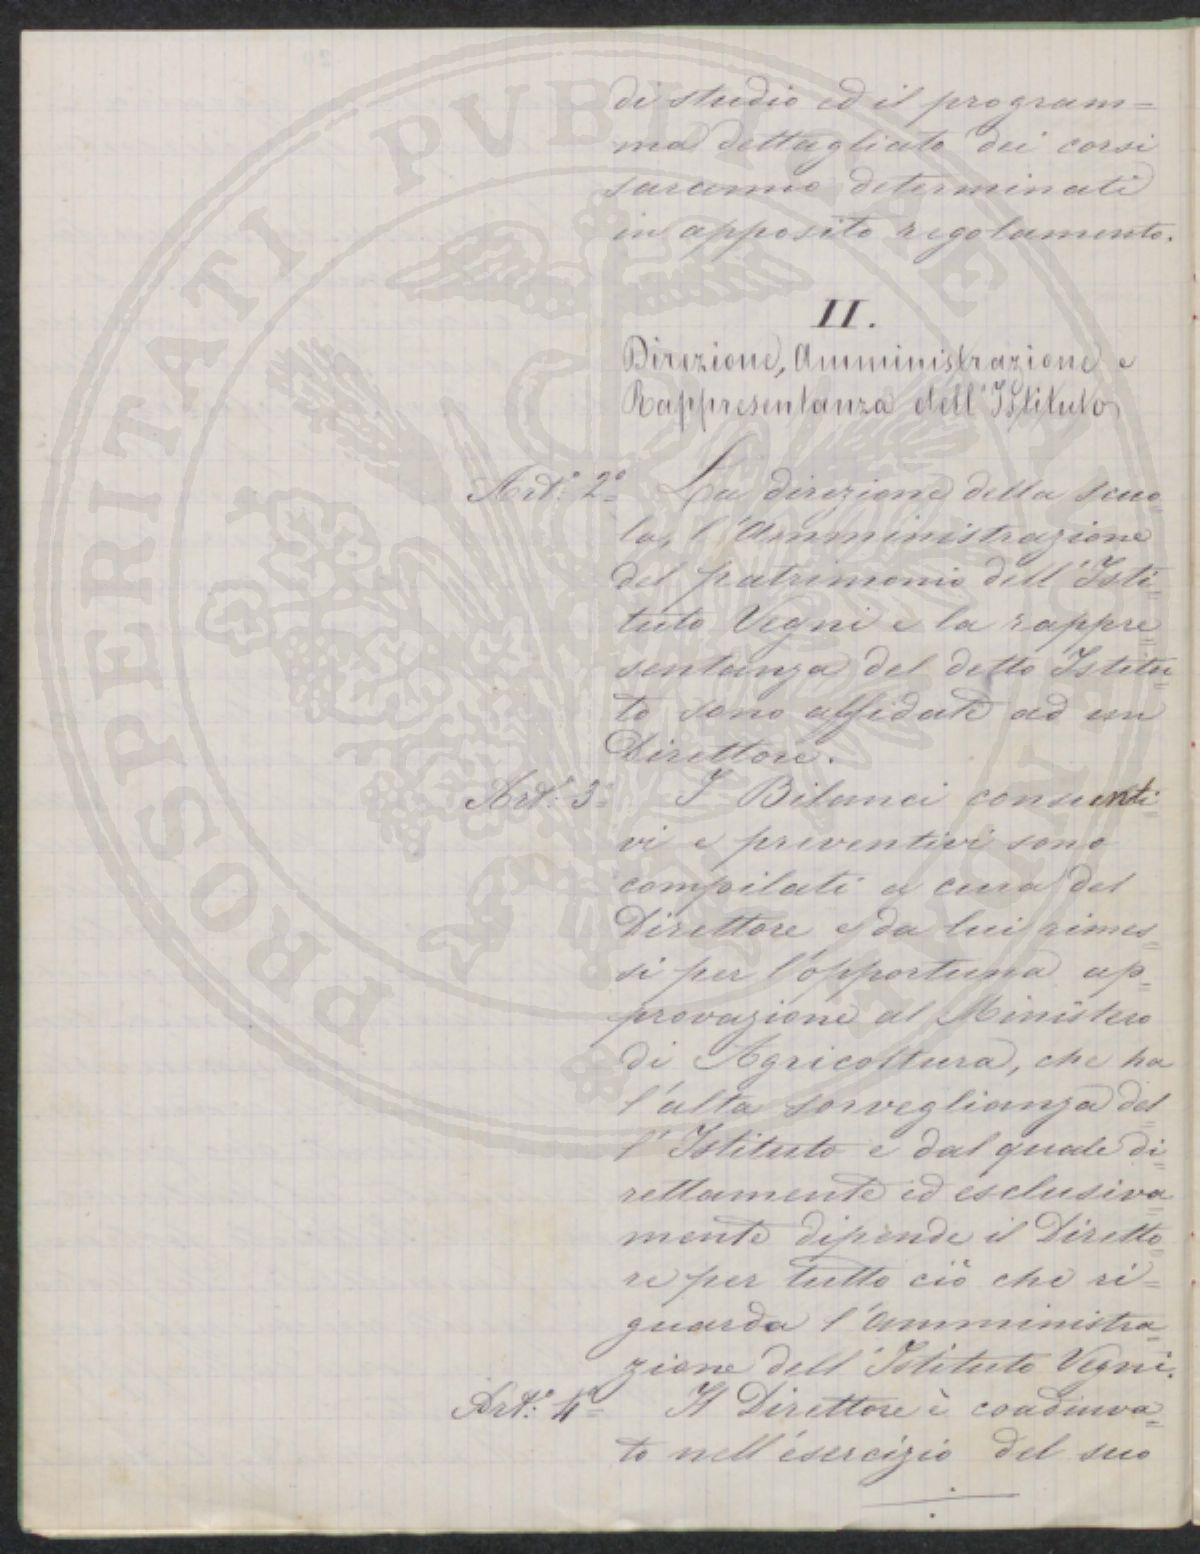 di studio ed il program=
ma dettagliato dei corsi
saranno determinati
in apposito regolamento.
II.
Direzione, Amministrazione e
Rappresentanza dell'Istituto
Art.º 2º La direzione della scuo
la, l'Amministrazione
del patrimonio dell'Isti
tuto Vegni e la rappre
sentanza del detto Istitu
to sono affidate ad un
Direttore.
Art.º 3º I Bilanci consunti
vi e preventivi sono
compilati a cura del
Direttore e da lui rimes
si per l'opportuna ap
provazione al Ministero
di Agricoltura, che ha
l'alta sorveglianza del
l'Istituto e dal quale di
rettamente ed esclusiva
mente dipende il Diretto
re per tutto ciò che ri=
guarda l'Amministra
zione dell'Istituto Vegni.
Art.º 4º Il Direttore è coadiuva
to nell'esercizio del suo
PROSPERITATI PVBLICAE